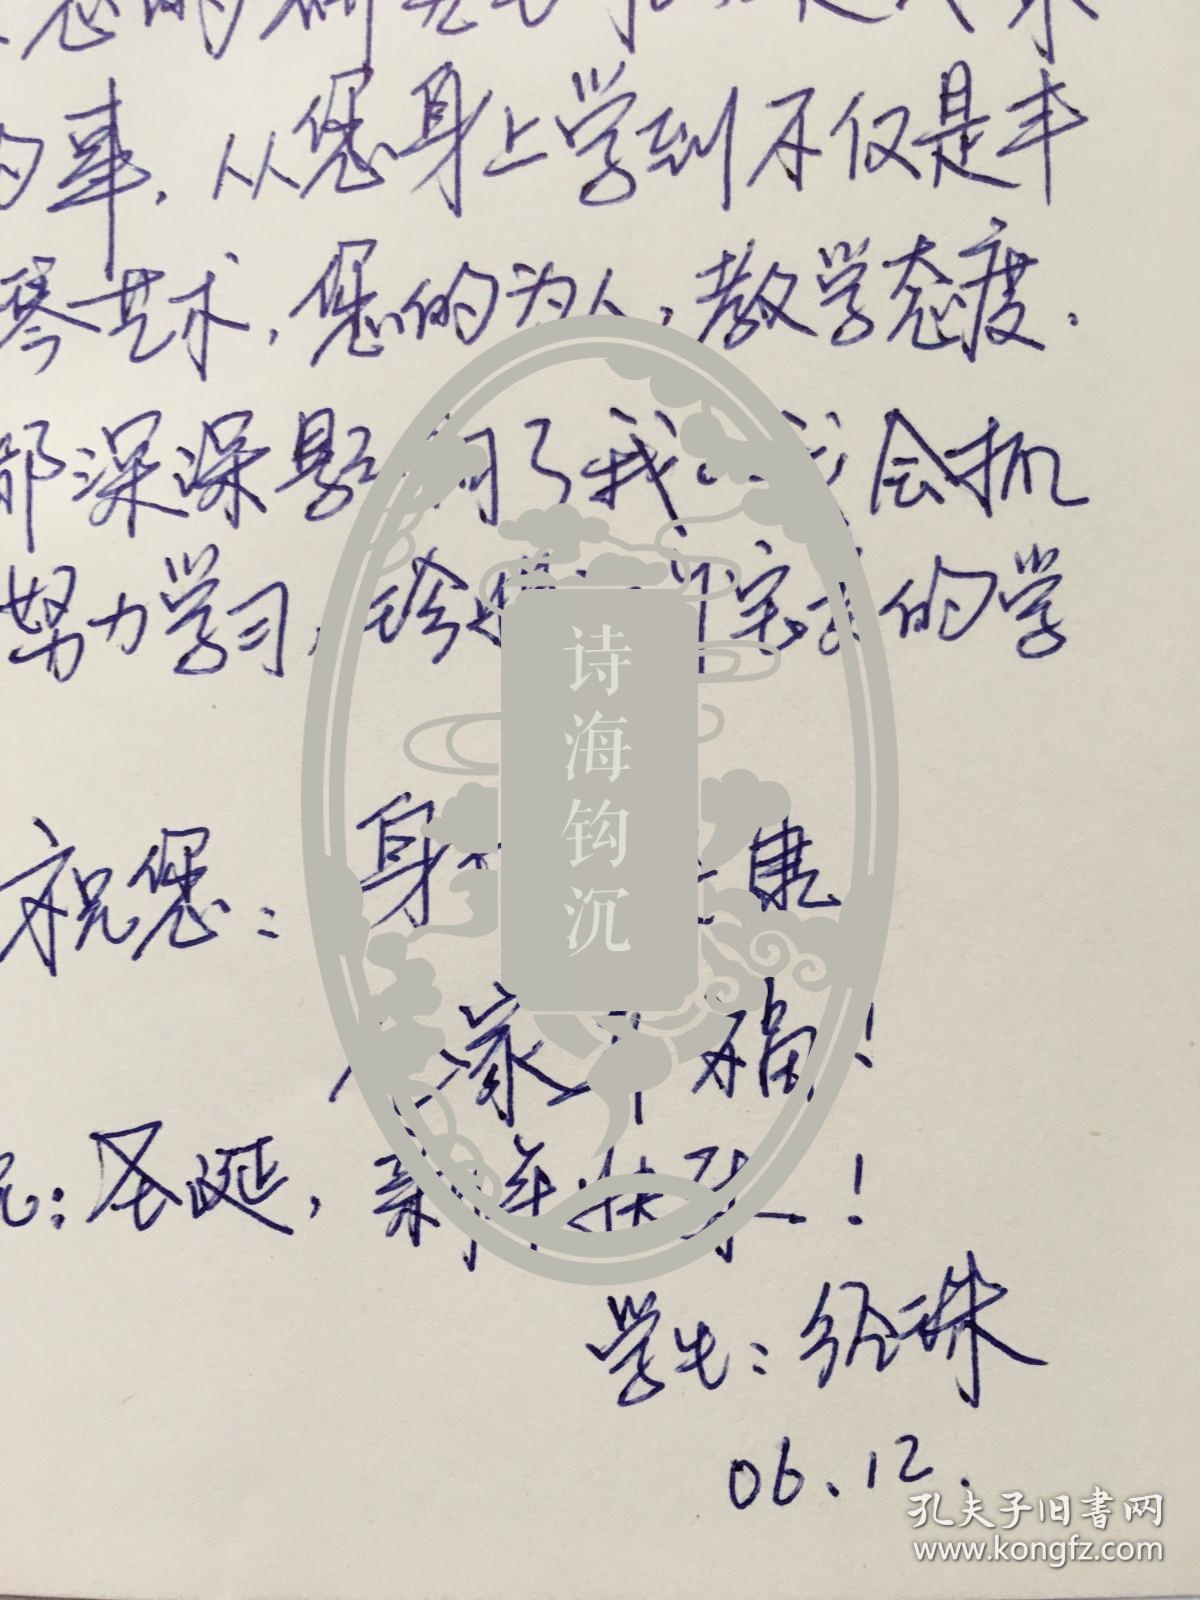 您的研究
的事，从您身上学到不仅是丰
琴艺术，您的为人，教学态度．
都深深影响了我 我会抓
努力学习，珍惜 的学
祝您：身 康
家 福！
圣诞，新年快乐！
学生：经珠
06.12.
诗海钩沉
孔夫子旧书网
www.kongfz.com